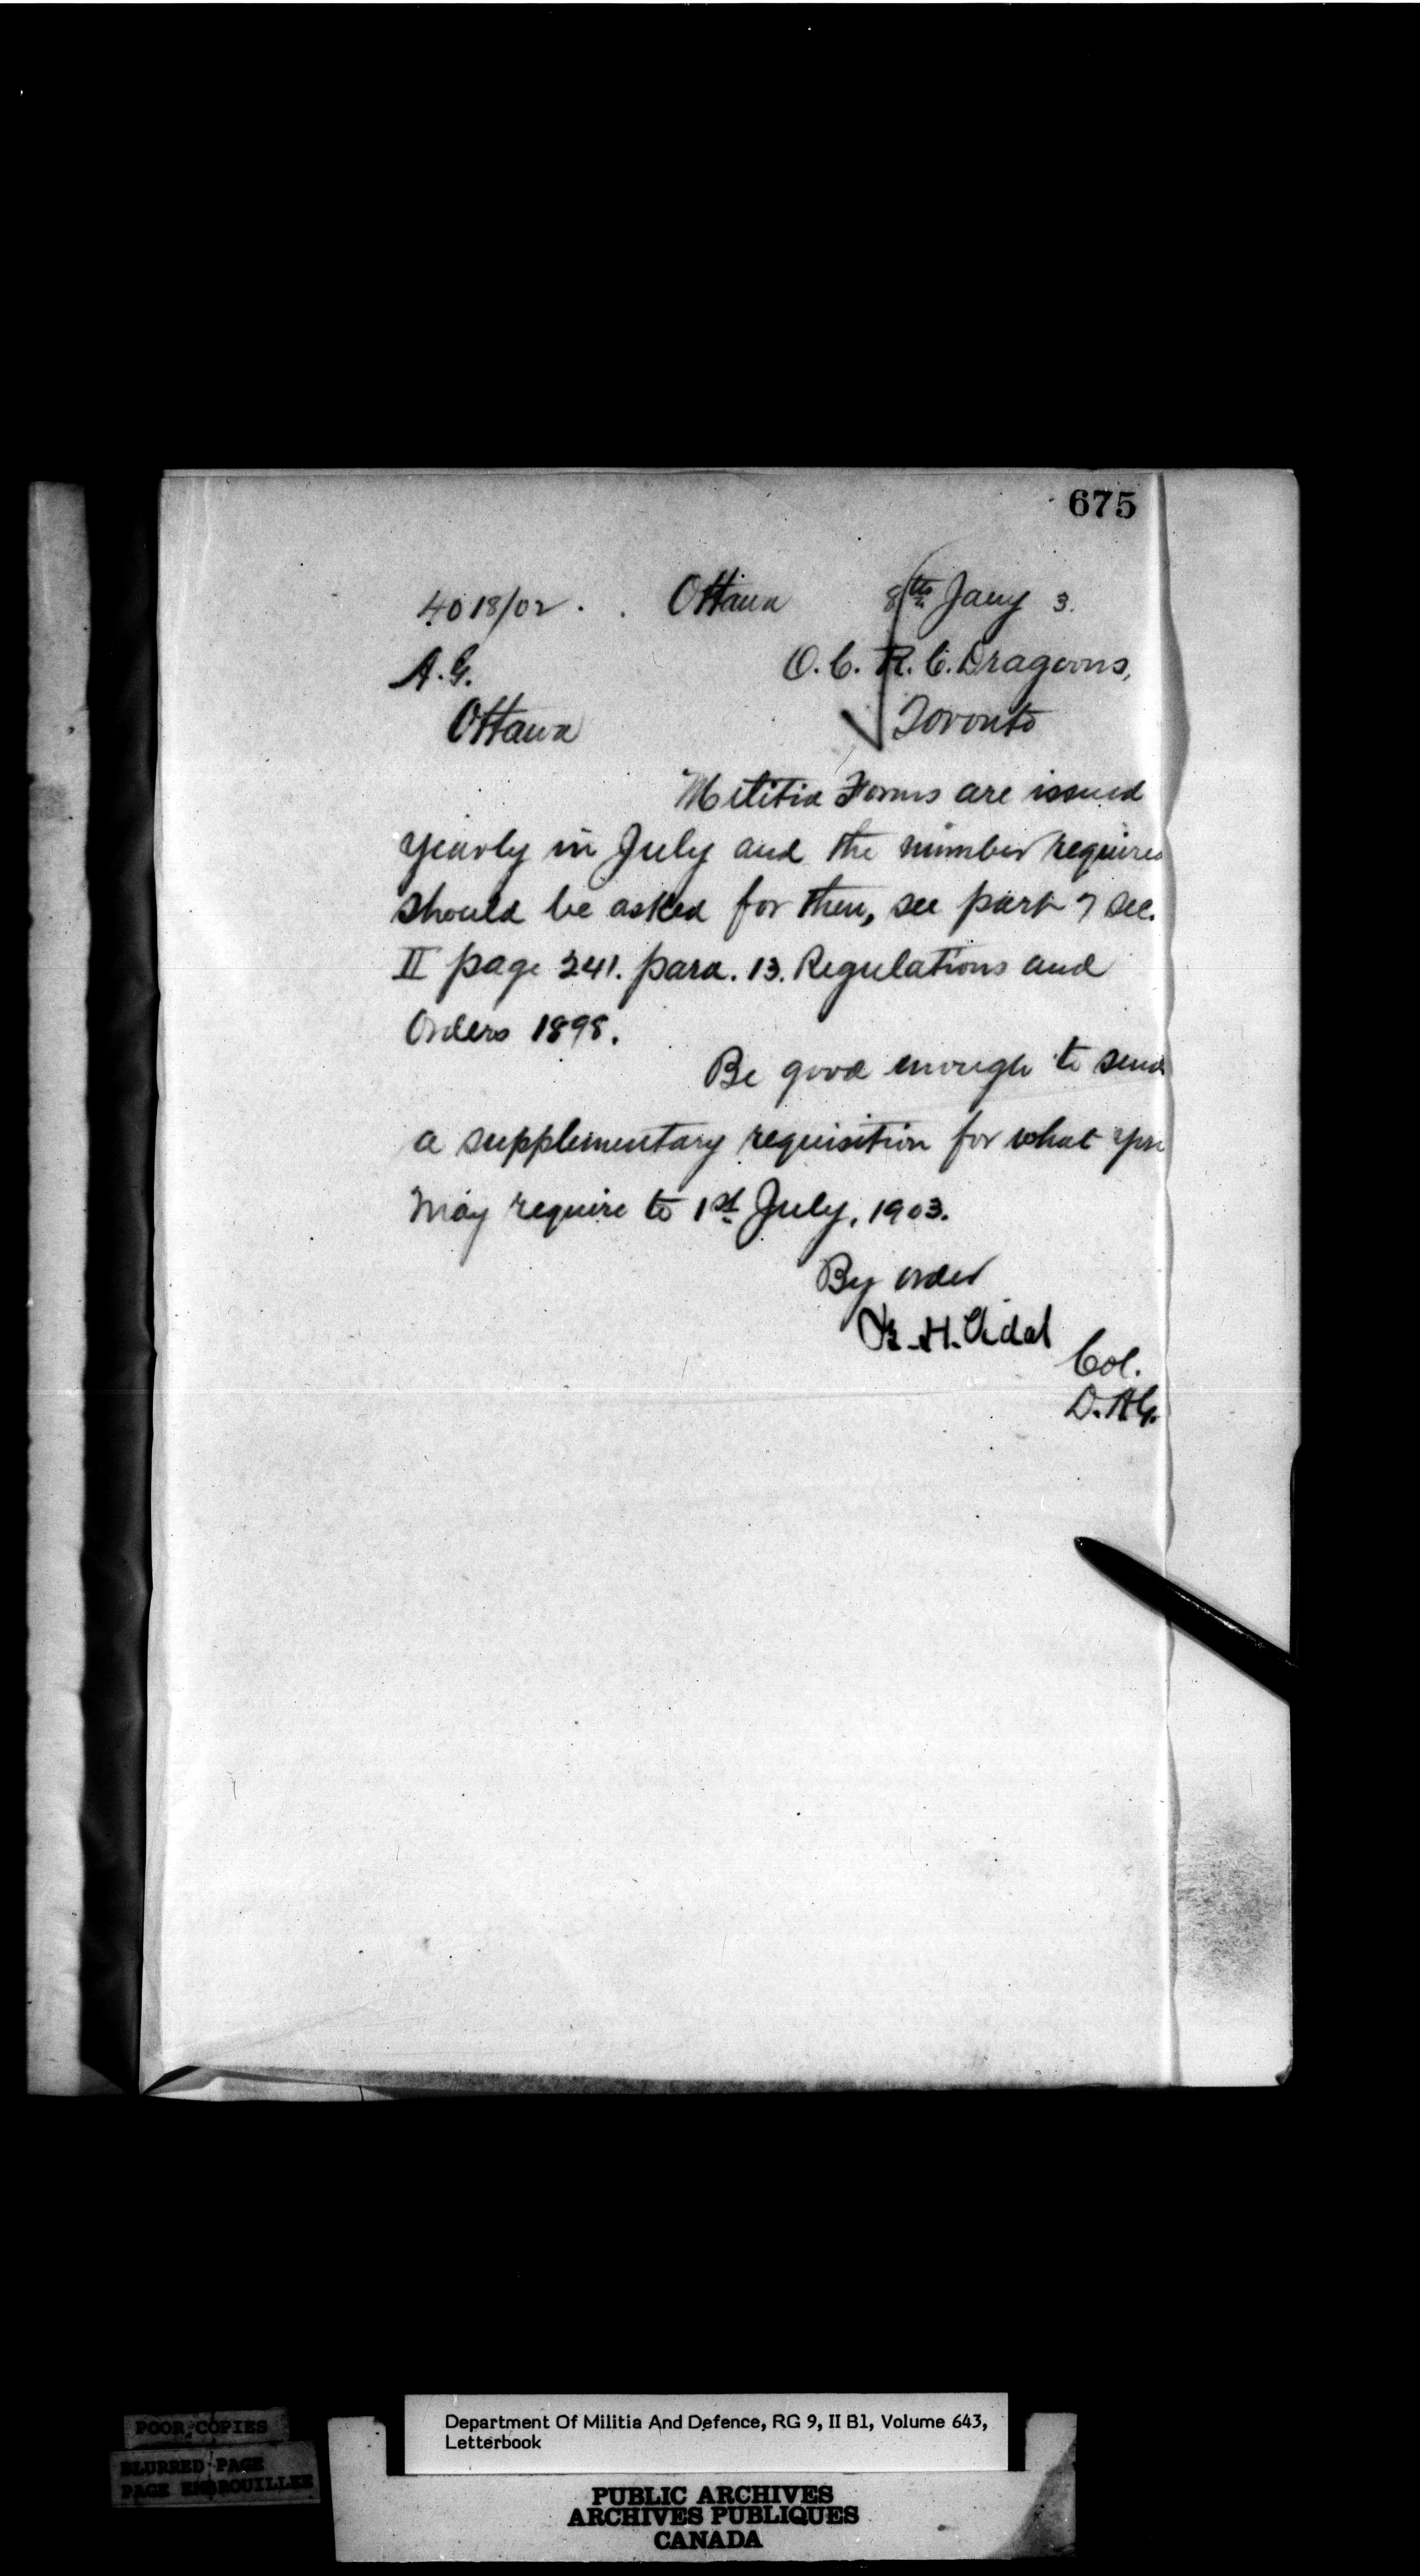 675
4018/02. Ottawa 8th Jany 3.
A.G. O.C. R.C. Dragoons,
Ottawa Toronto
Militia Forms are issued
yearly in July and the number required
should be asked for then, see part 7 sec.
II page 241. para. 13. Regulations and
Orders 1898.
Be good enough to send
a supplimentary requisition for what you
may require to 1st July, 1903.
By order
B. H. Vidal
Col.
D.A.G.
POOR COPIES
BLURRED PAGE
PAGE EMBROUILLEE
Department Of Militia And Defence, RG 9, II B1, Volume 643,
Letterbook
PUBLIC ARCHIVES
ARCHIVES PUBLIQUES
CANADA